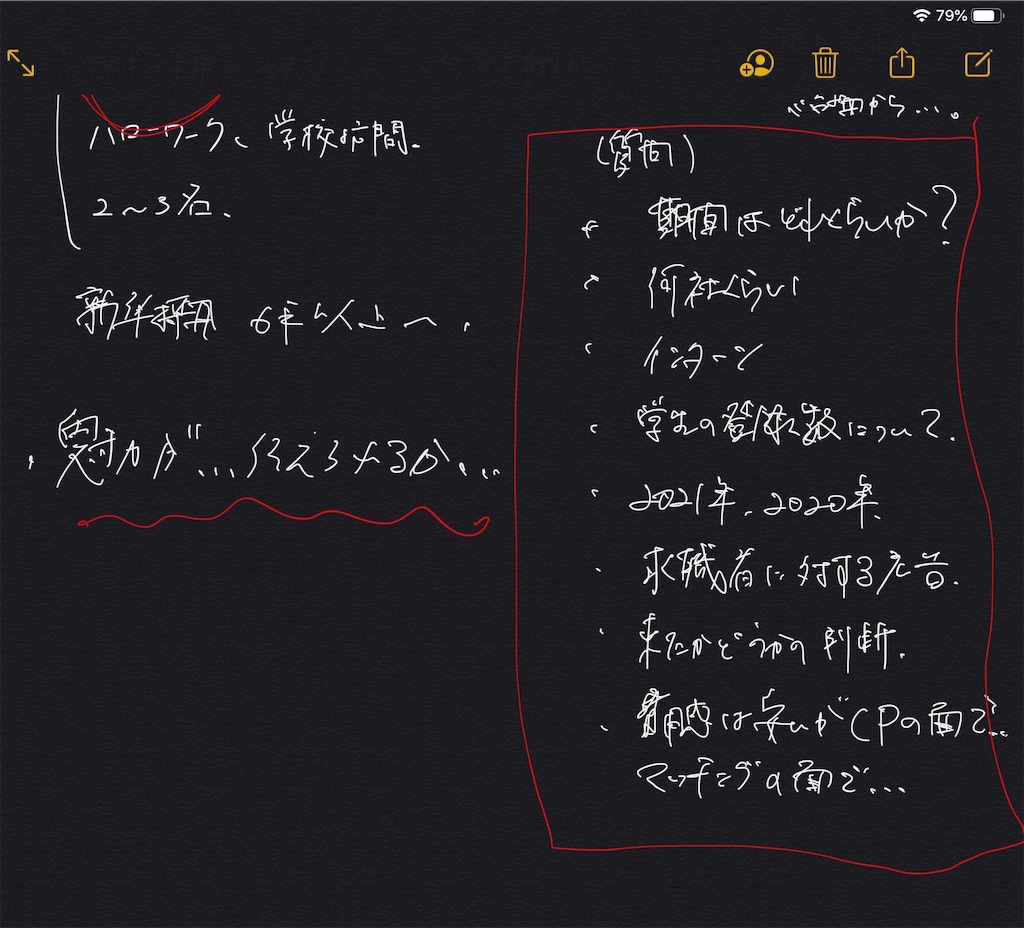 79%
から…。
ハローワーク、学校訪問.
2〜3名.
新卒採用 6年以上〜.
・魅力が…伝えられるか…
(質問)
・期間はどれくらいか?
・何社くらい
・インターン
・学生の登録数について.
・2021年、2020年.
・求職者に対する広告.
・来たかどうかの判断.
・費用感は安いがCPの面で…
マッチングの面で…